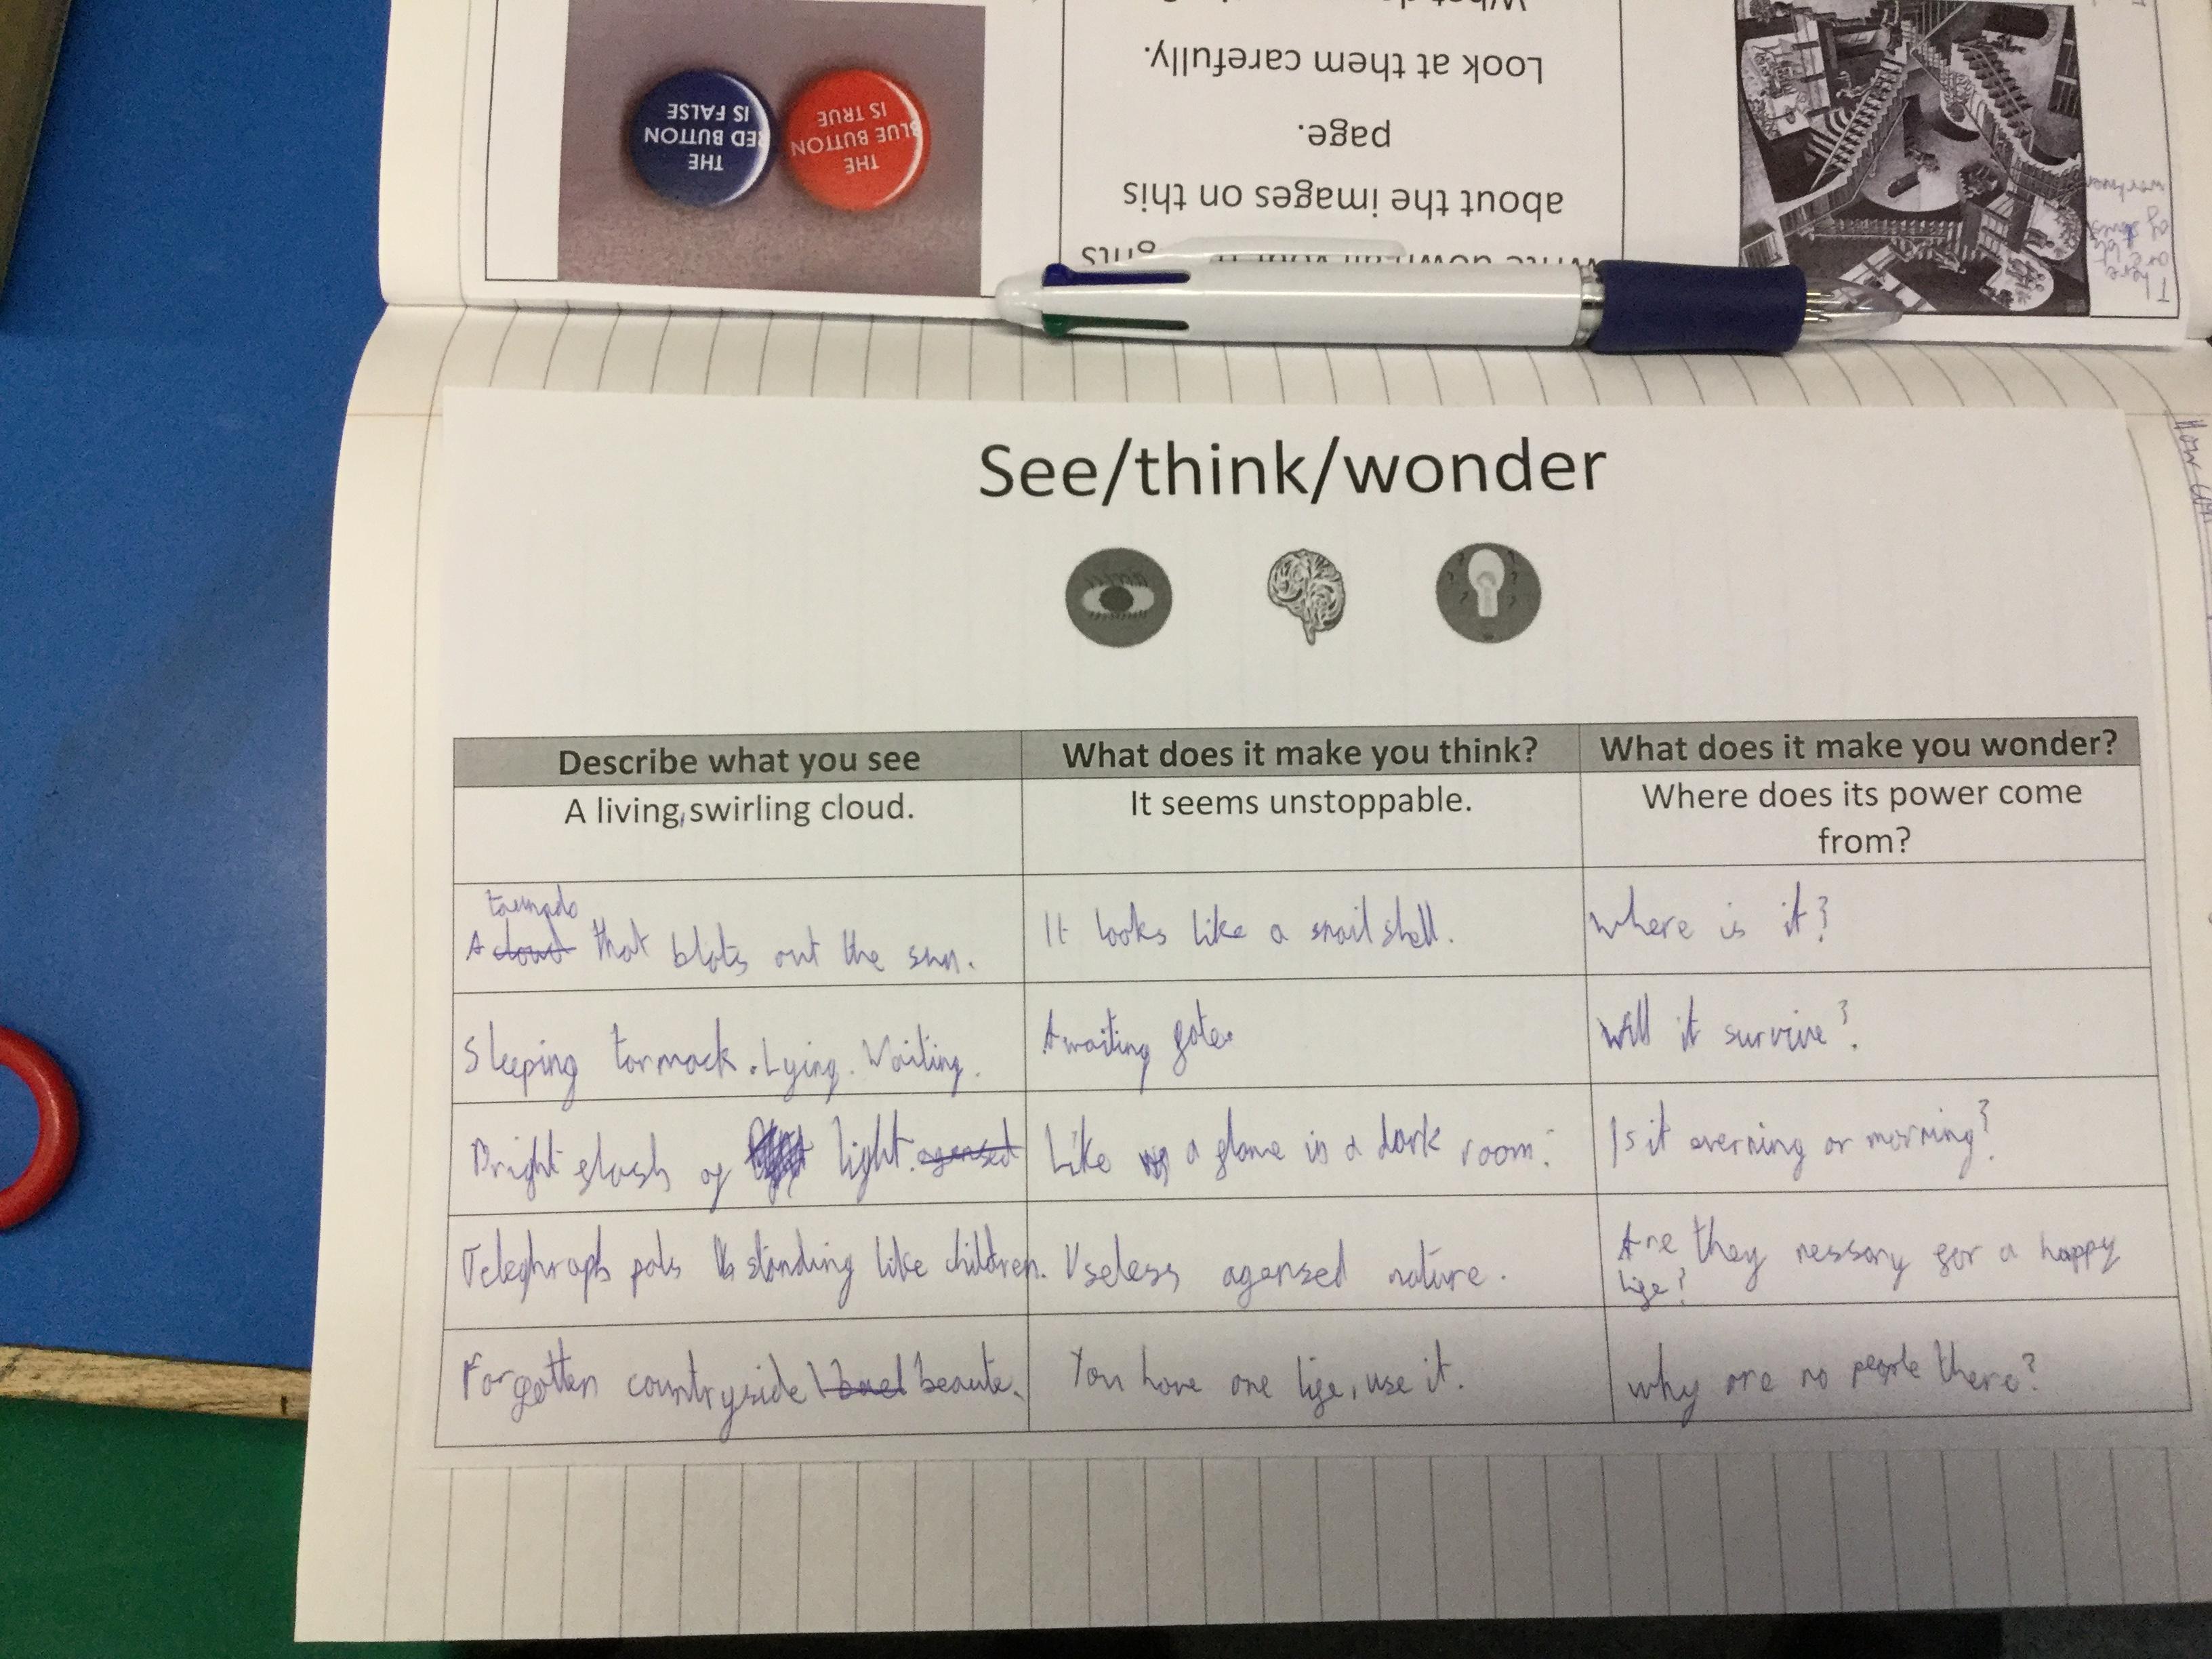 THE
RED BUTTON
IS FALSE
THE
BLUE BUTTON
IS TRUE
about the images on this
page.
Look at them carefully.
There
are lots
of
See/think/wonder
Describe what you see
What does it make you think?
What does it make you wonder?
A living, swirling cloud.
It seems unstoppable.
Where does its power come
from?
tournado
A cloud that blots out the sun.
It looks like a snail shell.
Where is it?
Sleeping tarmack. Lying. Waiting.
Awaiting fate.
Will it survive?
Bright slash of light. agensed
Like a flame in a dark room.
Is it everning or morning?
Teleghraph pols standing like children.
Useless agensed nature.
Are they nessary for a happy
life?
Forgotten countryside beaute.
You have one life, use it.
why are no people there?
How